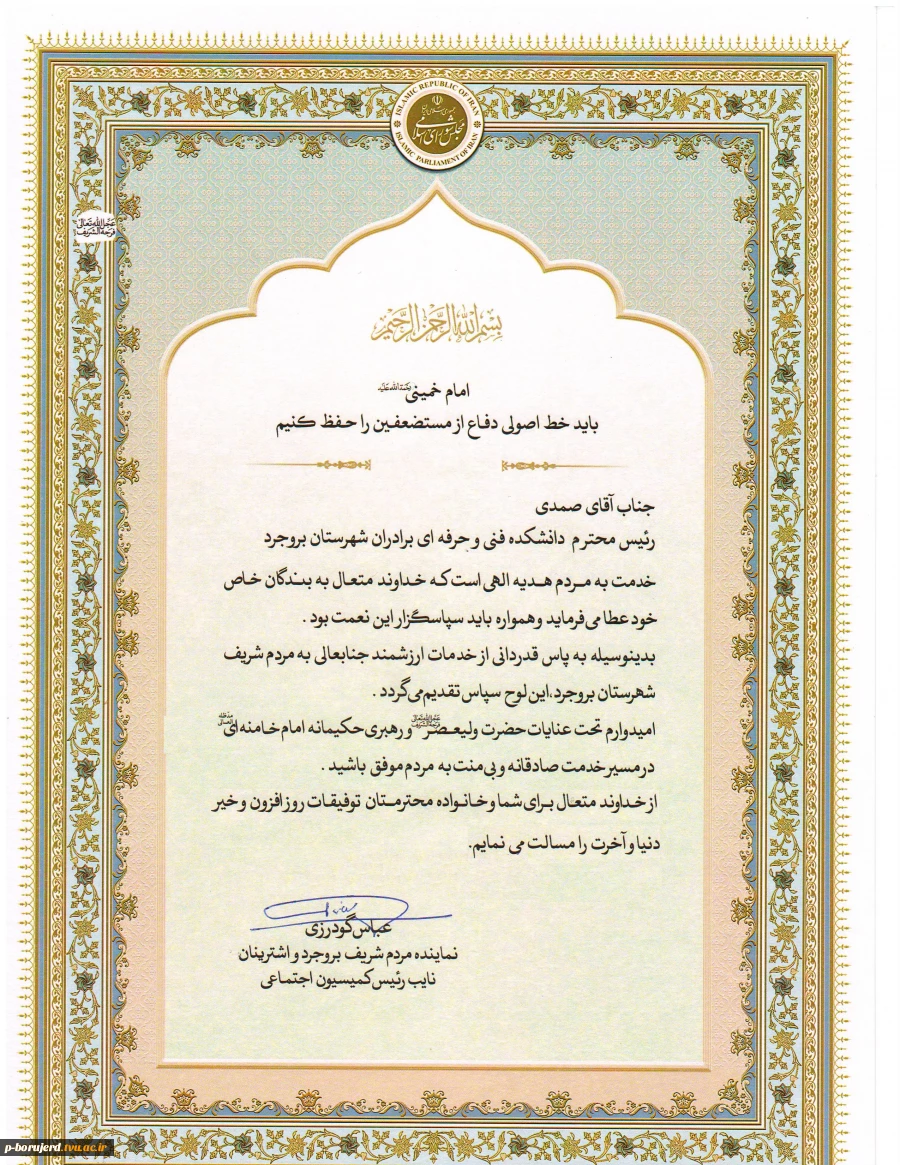 ISLAMIC REPUBLIC OF IRAN
جمهوری اسلامی ایران
مجلس شورای اسلامی
ISLAMIC PARLIAMENT OF IRAN
عجل الله تعالی
فرجه الشریف
بسم الله الرحمن الرحیم
امام خمینی رحمة الله علیه
باید خط اصولی دفاع از مستضعفین را حفظ کنیم
جناب آقای صمدی
رئیس محترم دانشکده فنی و حرفه ای برادران شهرستان بروجرد
خدمت به مردم هدیه الهی است که خداوند متعال به بندگان خاص
خود عطا می فرماید و همواره باید سپاسگزار این نعمت بود .
بدینوسیله به پاس قدردانی از خدمات ارزشمند جنابعالی به مردم شریف
شهرستان بروجرد،این لوح سپاس تقدیم می گردد .
امیدوارم تحت عنایات حضرت ولیعصر عجل الله تعالی فرجه الشریف و رهبری حکیمانه امام خامنه ای مدظله العالی
در مسیر خدمت صادقانه و بی منت به مردم موفق باشید .
از خداوند متعال برای شما و خانواده محترمتان توفیقات روز افزون و خیر
دنیا و آخرت را مسالت می نمایم.
عباس گودرزی
نماینده مردم شریف بروجرد و اشترینان
نایب رئیس کمیسیون اجتماعی
p-borujerd.tvu.ac.ir